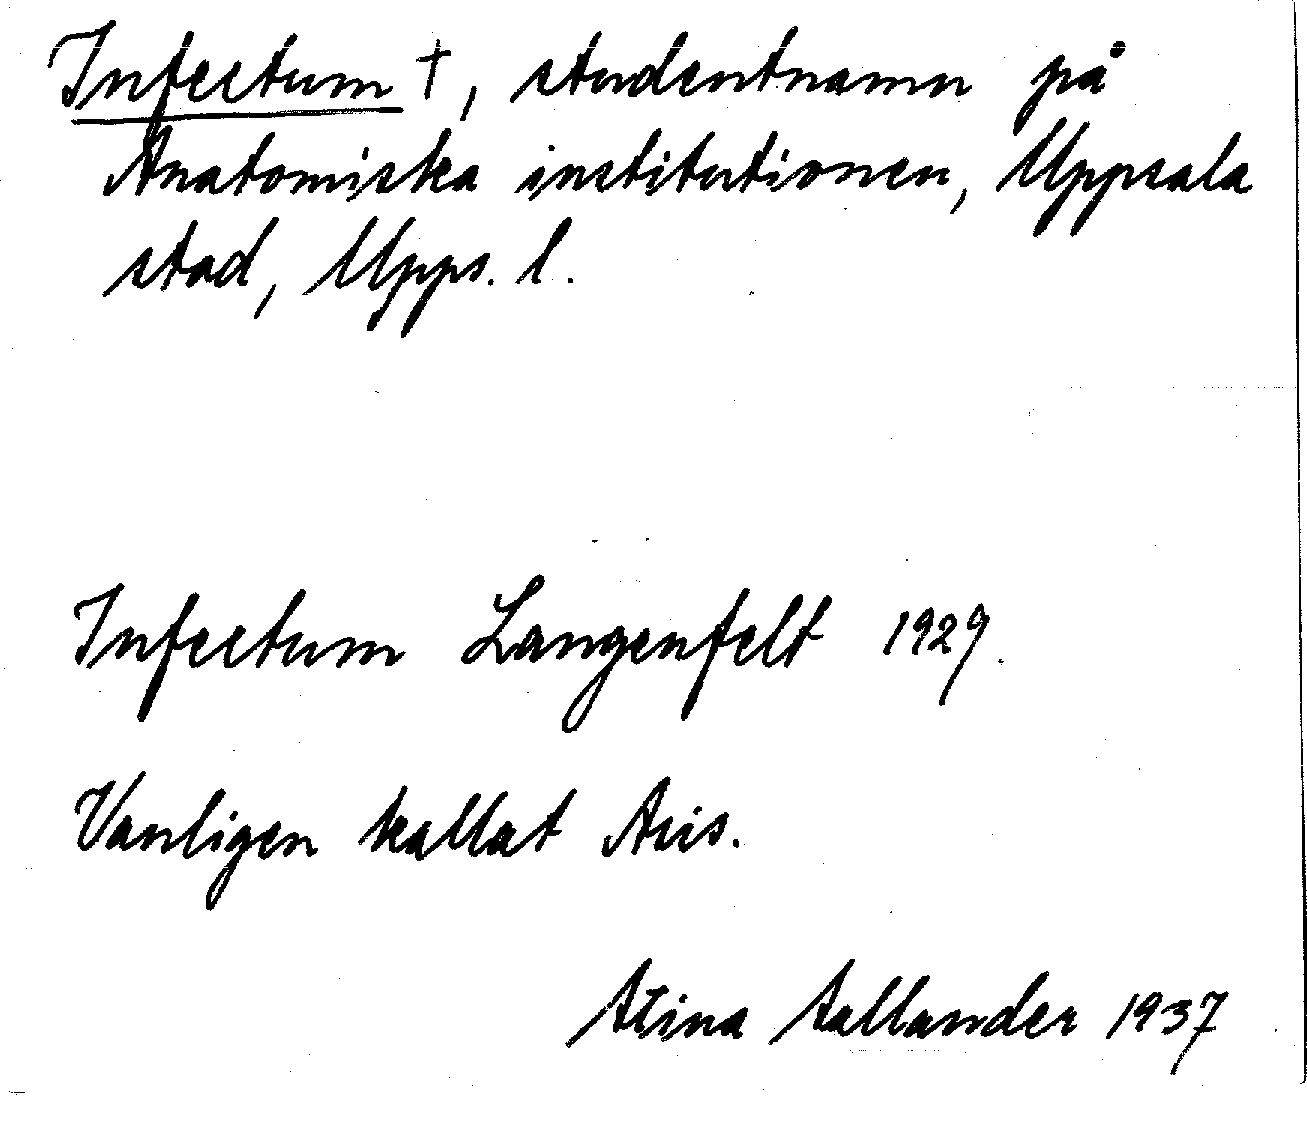 Infectum †, studentnamn på
Anatomiska institutionen, Uppsala
stad, Upps. l.
Infectum Langenfelt 1929.
Vanligen kallat
Stina Sallander 1937